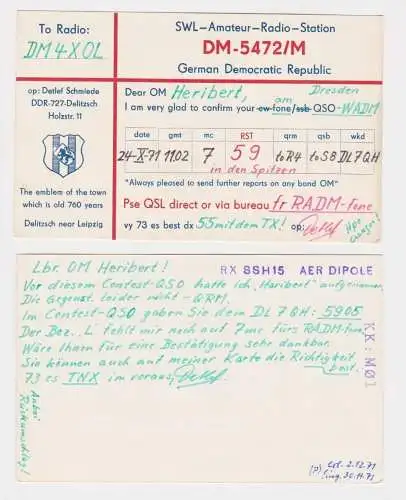 To Radio:
DM4XOL
SWL-Amateur-Radio-Station
DM-5472/M
German Democratic Republic
op: Detlef Schmiede
DDR-727-Delitzsch
Holzstr. 11
The emblem of the town
which is old 760 years
Delitzsch near Leipzig
Dear OM Heribert, Dresden
am
I am very glad to confirm your cw-fone/ssb QSO-WADM
date gmt mc RST qrm qsb wkd
24-X-71 1102 7 59 to R4 to S8 DL7QH
in den Spitzen
"Always pleased to send further reports on any band OM"
Pse QSL direct or via bureau fr RADM-fone
vy 73 es best dx 55 mit dem TX! op: Detlef
Lbr. OM Heribert!
RX SSH15 AER DIPOLE
Vor diesem Contest-QSO hatte ich "Heribert" aufgenommen.
Die Gegenst. leider nicht - QRM.
Im Contest-QSO gaben Sie dem DL7QH: 5905
Der Bez. „L" fehlt mir noch auf 7mc fürs RADM-fone.
Wäre Ihnen für eine Bestätigung sehr dankbar.
Sie können auch auf meiner Karte die Richtigkeit
best.
73 es TNX im voraus, Detlef
Anbei
Rückumschlag!
KK: M01
(p) Erl. 2.12.71
Eing. 30.11.71